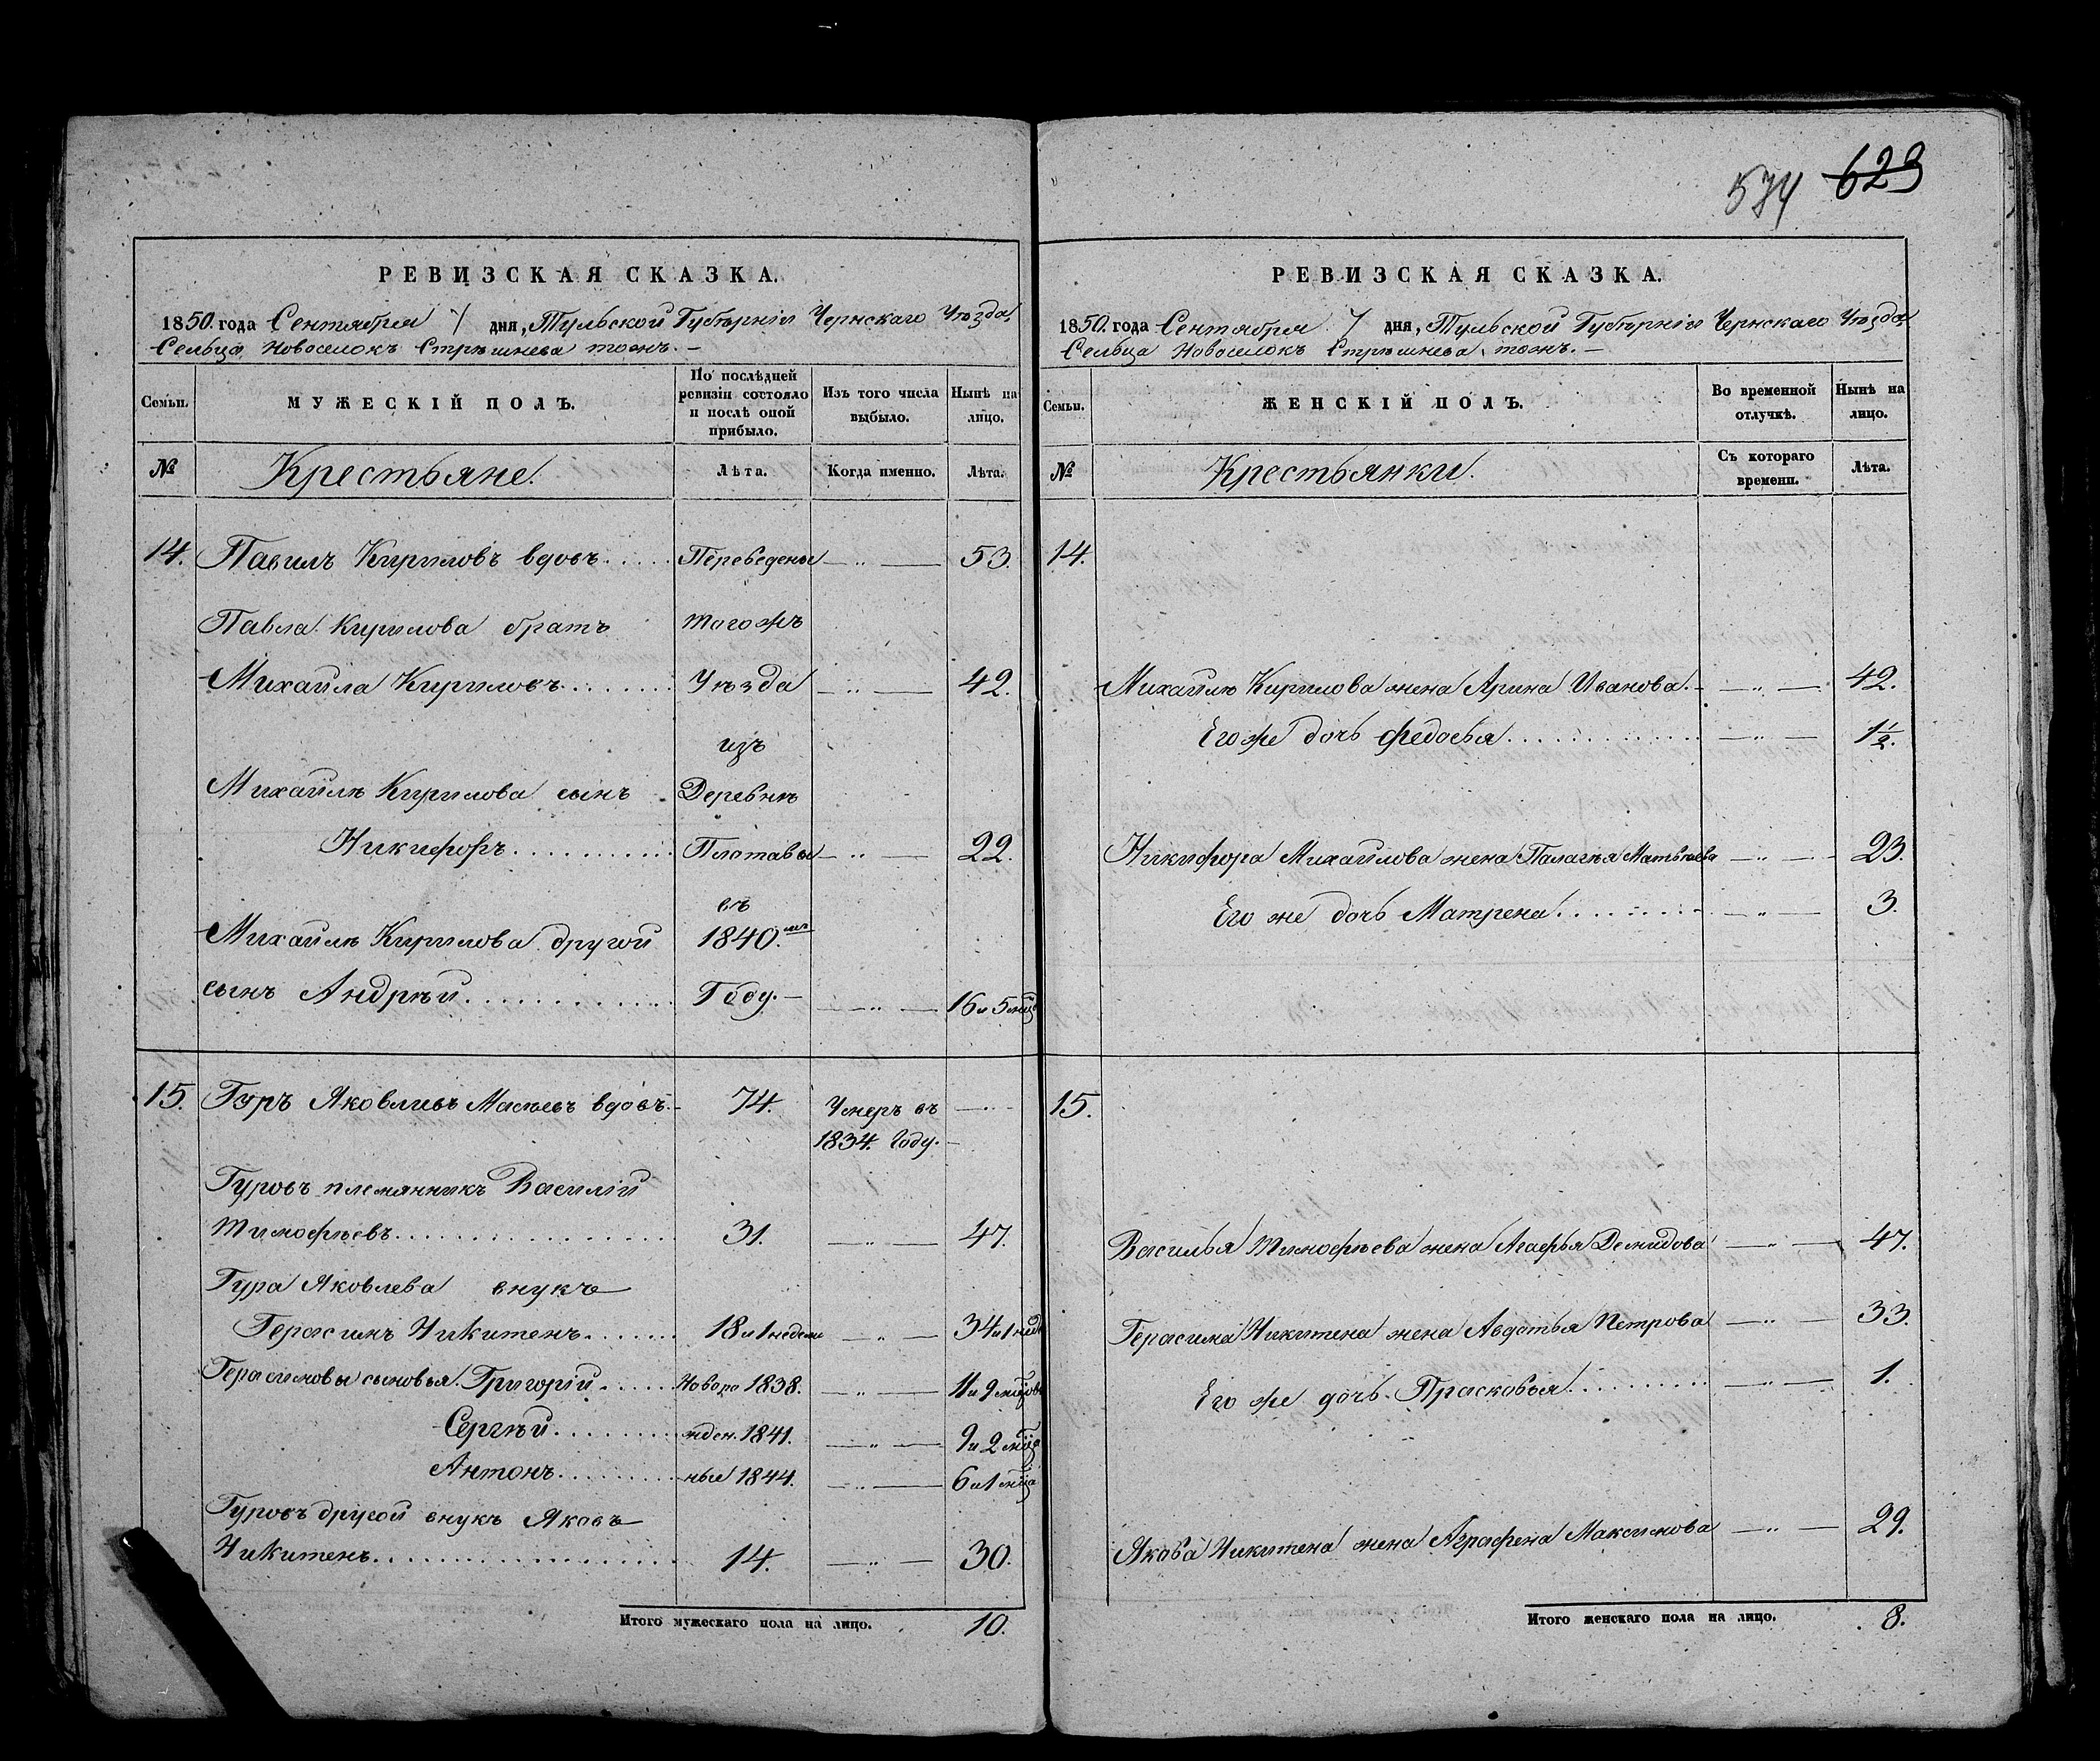 574 623
РЕВИЗСКАЯ СКАЗКА.
1850. года Сентября 7 дня, Тульской Губѣрніи Чернскаго Уѣзда,
Сельца Новоселокъ Стрѣшнева тожъ.
Семьи.
МУЖЕСКІЙ ПОЛЪ.
По послѣдней ревизіи состояло и послѣ оной прибыло.
Изъ того числа выбыло.
Нынѣ на лицо.
№
Крестьяне.
Лѣта.
Когда именно.
Лѣта.
14. Павилъ Кириловъ вдовъ..... Переведены —„— 53.
Павла Кирилова братъ тогожъ
Михайла Кириловъ....... Уѣзда —„— 42.
изъ
Михайлы Кирилова сынъ Деревнѣ
Никифоръ........... —„— 22.
въ
Михайлы Кирилова другой 1840.мъ
сынъ Андрѣй............. Году.— —„— 16 и 5 мцъ
15. Гуръ Яковливъ вдовъ.- 74. Умеръ въ —
1834. Году.-
Гуровъ племянникъ Василій
Тимофѣевъ................. 31. —„— 47.
Гура Яковлева внукъ
Герасимъ Никитенъ....... 18 и 1 недели —„— 34 и 1 нед
Герасимовы сыновья. Григорій..... Новоро 1838. —„— 11 и 9 мцовъ
Сергѣй......... жден. 1841. —„— 9 и 2 мца
Антонъ......... ные 1844. —„— 6 и 1 мца
Гуровъ другой внукъ Яковъ
Никитенъ................... 14. —„— 30.
Итого мужескаго пола на лицо. 10.
РЕВИЗСКАЯ СКАЗКА.
1850. года Сентября 7 дня, Тульской Губѣрніи Чернскаго Уѣзда,
Сельца Новоселокъ Стрѣшнева тожъ.—
Семьи.
ЖЕНСКІЙ ПОЛЪ.
Во временной отлучкѣ.
Нынѣ на лицо.
№
Крестьянки.
Съ котораго времени.
Лѣта.
14.
Михайлы Кирилова жена Арина Иванова.- —„— 42.
Его же дочь Федосья............ —„— 1½.
Никифора Михайлова жена Палагѣя Матвѣева —„— 23.
Его же дочь Матрена......... —„— 3.
15.
Василья Тимофѣева жена Агафья Демидова —„— 47.
Герасима Никитена жена Авдотья Петрова —„— 33.
Его же дочь Прасковья.......... —„— 1.
Якова Никитена жена Аграфена Максимова —„— 29.
Итого женскаго пола на лицо. 8.